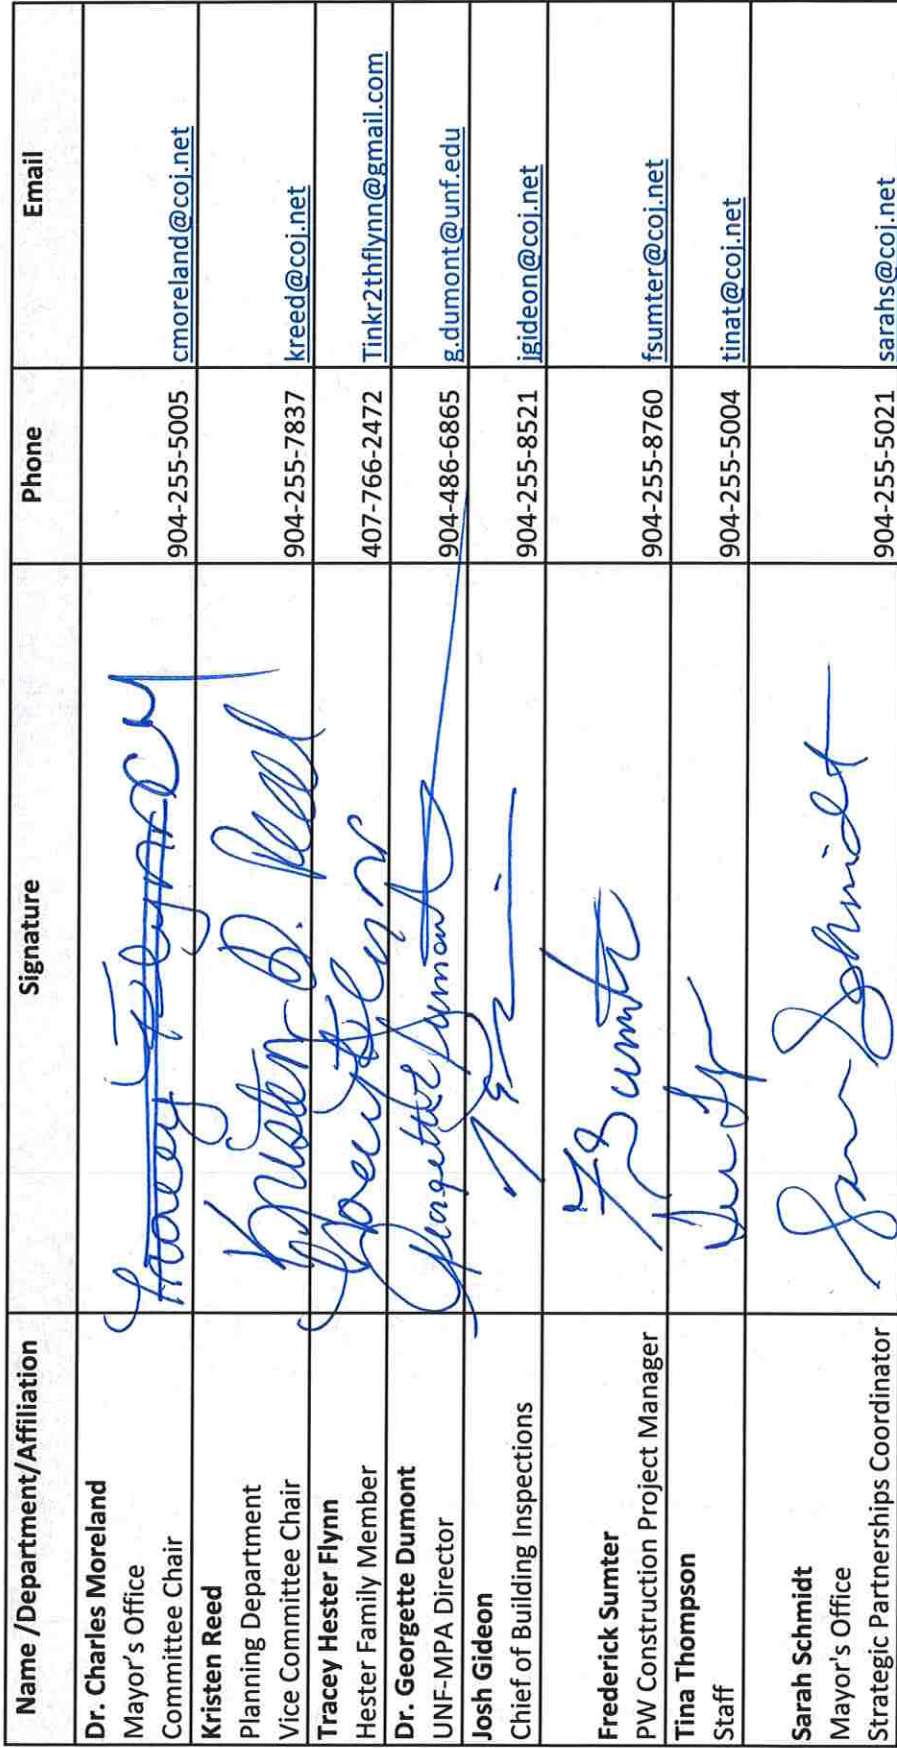 Name /Department/Affiliation Signature Phone Email
Dr. Charles Moreland
Mayor's Office
Committee Chair Tracey Flynn CM 904-255-5005 cmoreland@coj.net
Kristen Reed
Planning Department
Vice Committee Chair Kristen D. Reed 904-255-7837 kreed@coj.net
Tracey Hester Flynn
Hester Family Member Tracey Flynn 407-766-2472 Tinkr2thflynn@gmail.com
Dr. Georgette Dumont
UNF-MPA Director Georgette Dumont 904-486-6865 g.dumont@unf.edu
Josh Gideon
Chief of Building Inspections 904-255-8521 jgideon@coj.net
Frederick Sumter
PW Construction Project Manager F Sumter 904-255-8760 fsumter@coj.net
Tina Thompson
Staff 904-255-5004 tinat@coj.net
Sarah Schmidt
Mayor's Office
Strategic Partnerships Coordinator Sarah Schmidt 904-255-5021 sarahs@coj.net